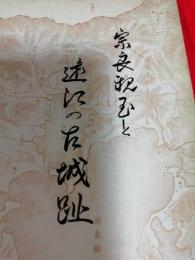 宗良親王と
遠江の古城趾